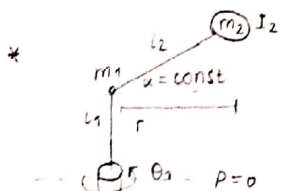 *
m2 I2
l2
m1
α = const
l1
r
θ1
P=0